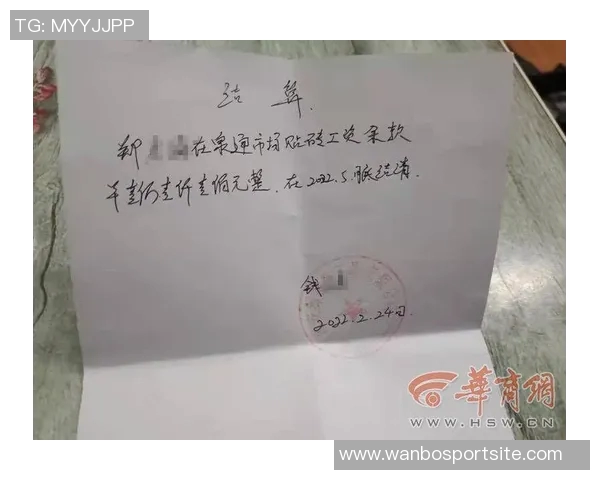 TG: MYYJJPP
结 算.
郑 在泉通市场贴砖工资余款
仟壹佰元整.在2022.5.底结清.
钱
2022.2.24日.
華商網
WWW.HSW.CN
www.wanbosportsite.com